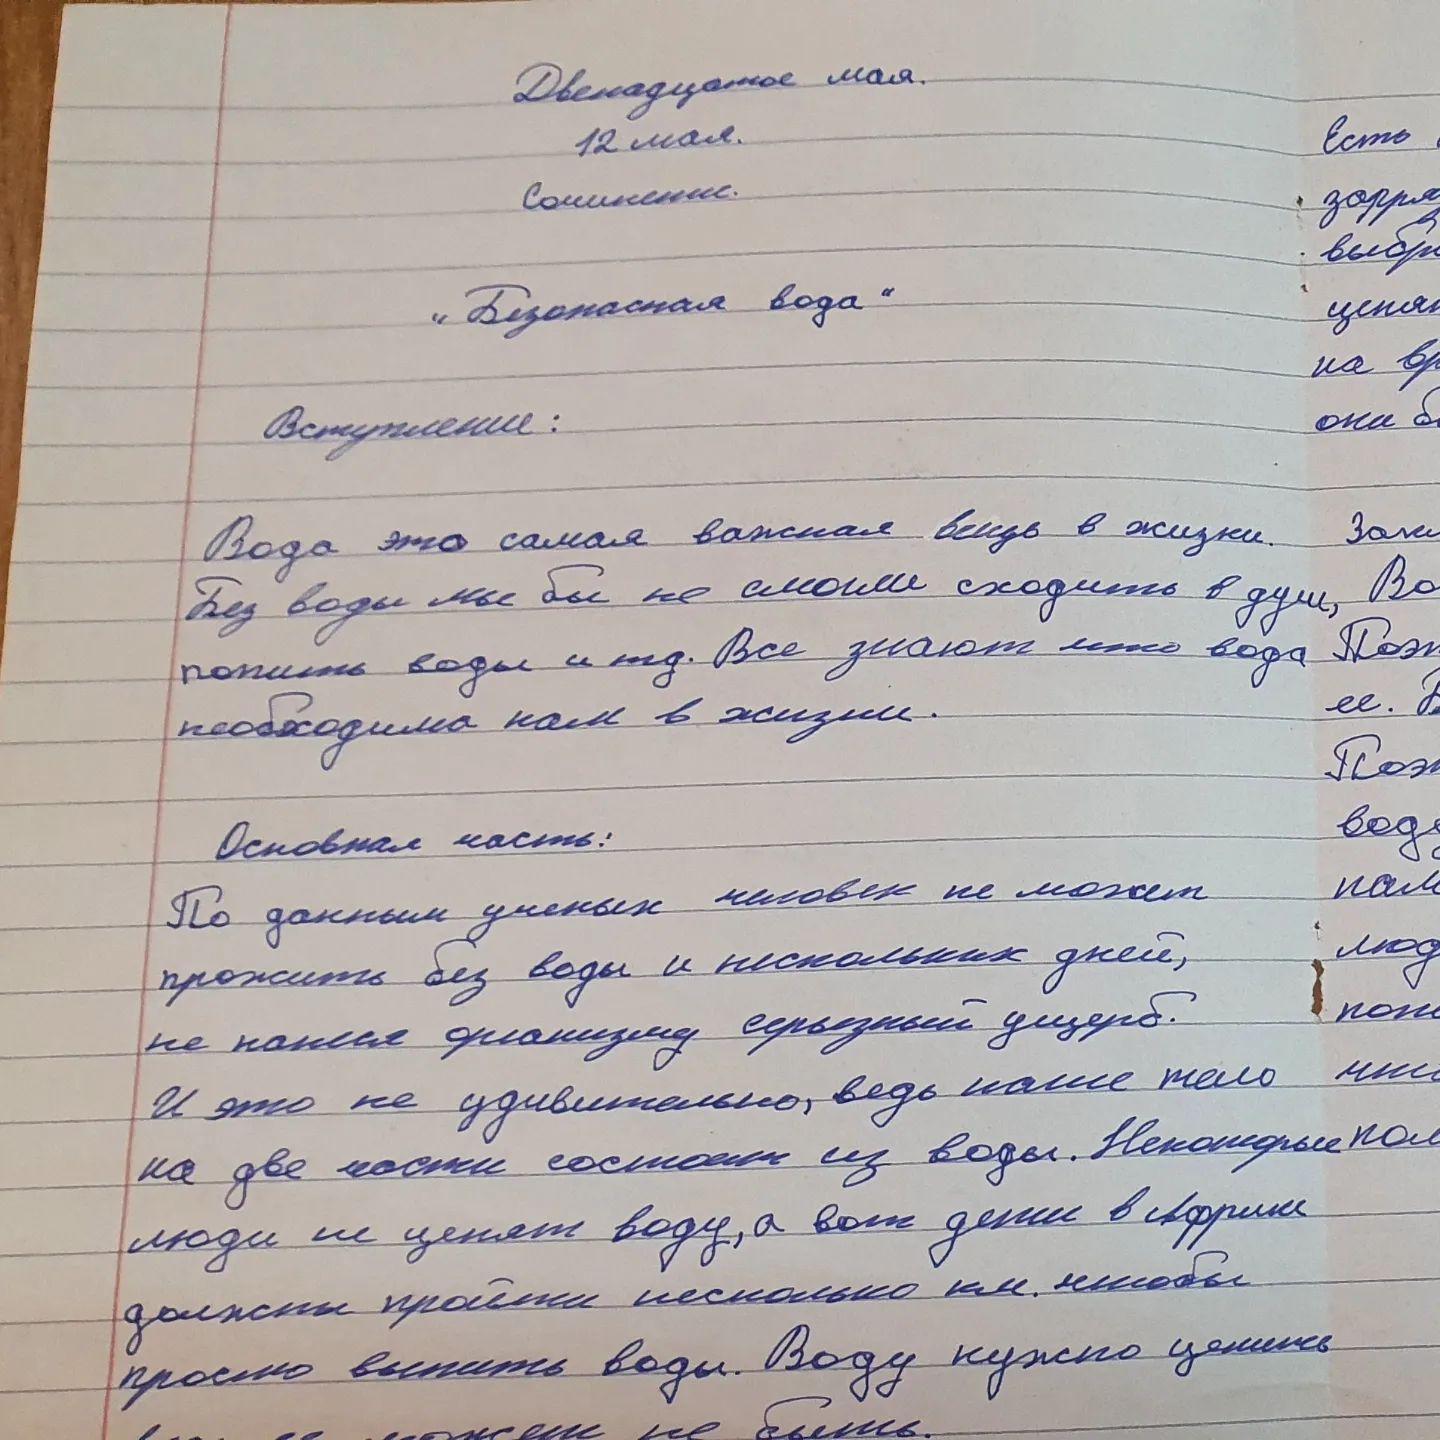 Двенадцатое мая.
12 мая.
Сочинение.
„Безопасная вода“
Вступление:
Вода это самая важная вещь в жизни.
Без воды мы бы не смогли сходить в душ,
попить воды и тд. Все знают что вода
необходима нам в жизни.
Основная часть:
По данным ученых человек не может
прожить без воды и нескольких дней,
не нанеся организму серьезный ущерб.
И это не удивительно, ведь наше тело
на две части состоит из воды. Некоторые
люди не ценят воду, а вот дети в Африке
должны пройти несколько км. чтобы
просто выпить воды. Воду нужно ценить
ее может не быть.
Есть
на
они
ее.